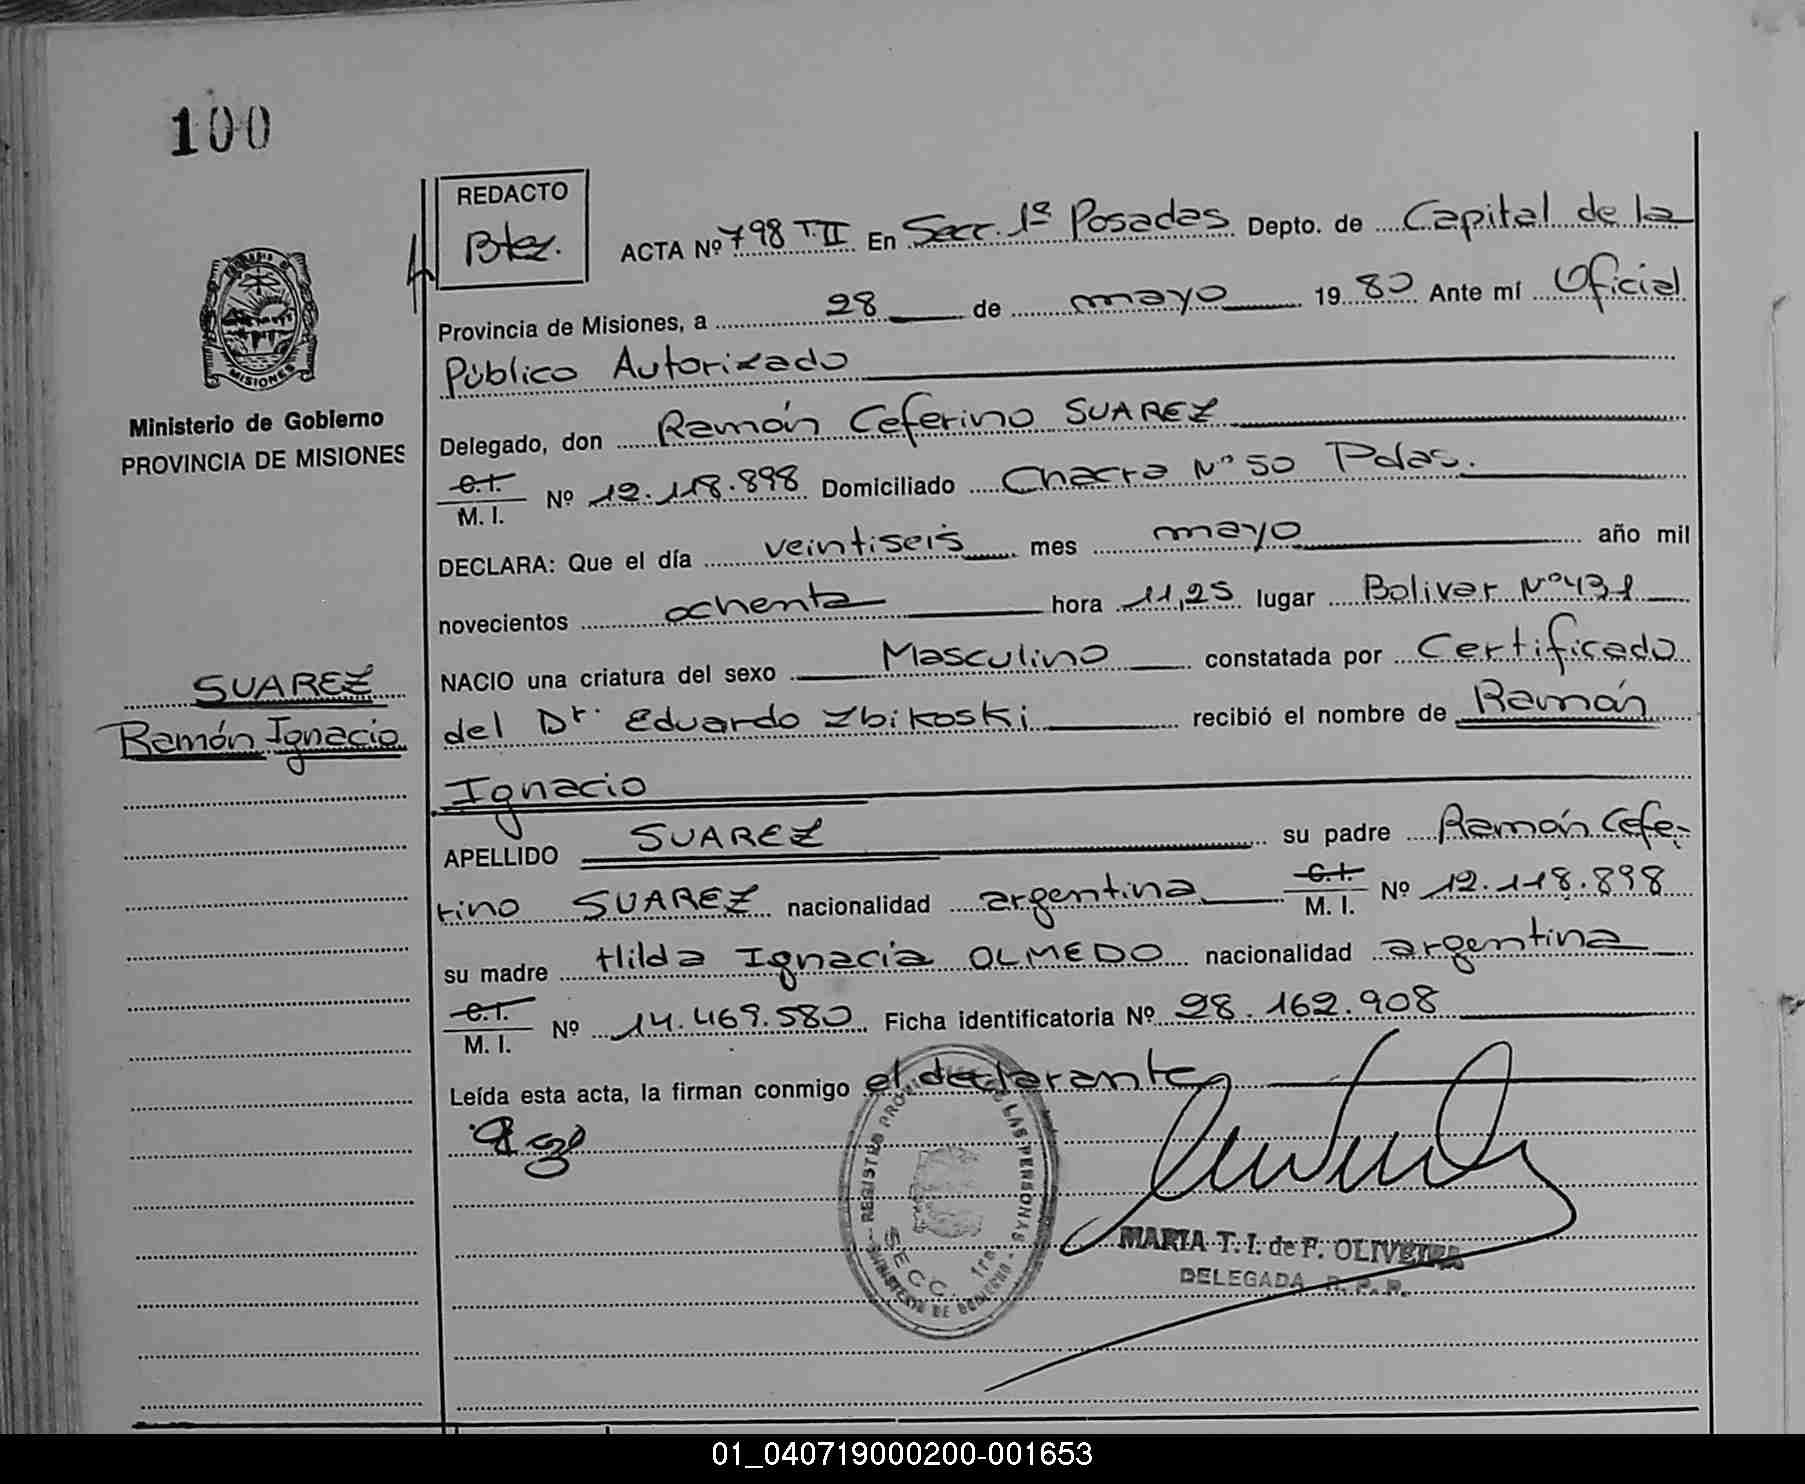 100
REDACTO
ACTA Nº 798 T.II En Secc. 1ª Posadas Depto. de Capital de la
Provincia de Misiones, a 28 de mayo 1980 Ante mí Oficial
Público Autorizado
MISIONES
Ministerio de Gobierno
PROVINCIA DE MISIONES
Delegado, don Ramón Ceferino SUAREZ
C.I.
M. I. Nº 12.118.898 Domiciliado Chacra Nº 50 Pdas.
DECLARA: Que el día veintiseis mes mayo año mil
novecientos ochenta hora 11,25 lugar Bolivar Nº 431
NACIO una criatura del sexo Masculino constatada por Certificado
SUAREZ
Ramón Ignacio
del Dr. Eduardo Zbikoski recibió el nombre de Ramón
Ignacio
APELLIDO SUAREZ su padre Ramón Cefe-
rino SUAREZ nacionalidad argentina C.I. M. I. Nº 12.118.898
su madre Hilda Ignacia OLMEDO nacionalidad argentina
C.I.
M. I. Nº 14.469.580 Ficha identificatoria Nº 28.162.908
Leída esta acta, la firman conmigo el declarante
REGISTRO PRO LAS PERSONAS
SECC. 1ra
MINISTERIO DE GOBIERNO
MARIA T. I. de F. OLIVEIRA
DELEGADA R. P. P.
01_040719000200-001653